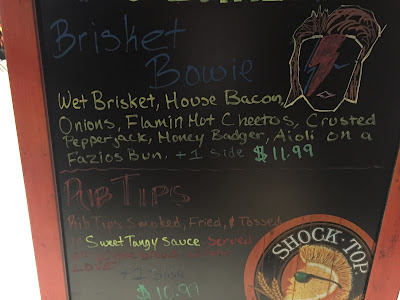 Brisket
Bowie
Wet Brisket, House Bacon,
Onions, Flamin Hot Cheetos, Crusted
Pepperjack, Money Badger, Aioli on a
Fazios Bun. +1 Side $11.99
Rub Tips
Rib Tips Smoked, Fried, & Tossed
Sweet Tangy Sauce served
LOVE
+1 Side
$10.91
SHOCK·TOP